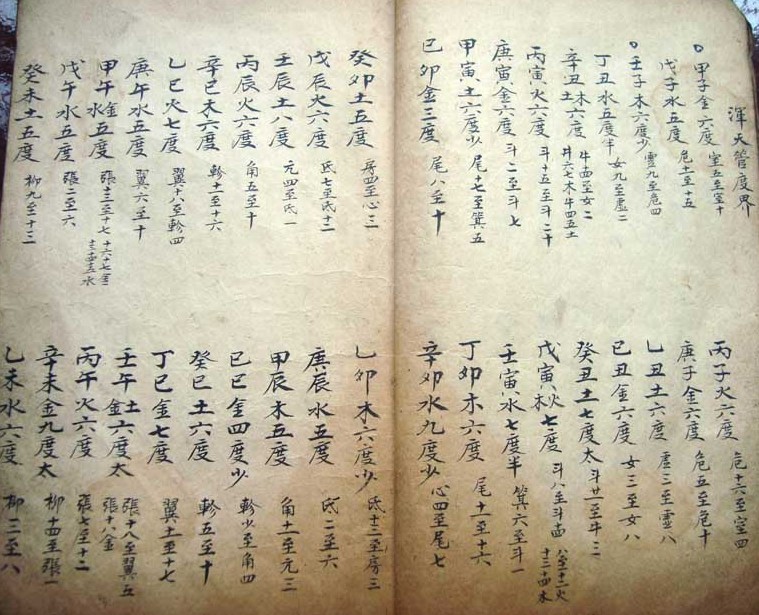 渾天管度界
甲子金六度 室五至室十
丙子火六度 危十六至室四
戊子水五度 危十一至十五
庚子金六度 危五至危十
壬子木六度少 虛九至危四
乙丑土六度 虛三至虛八
丁丑水五度半 女九至虛二
己丑金六度 女三至女八
辛丑土木六度 牛四至女二 牛六七木牛四五土
癸丑土七度太 斗廿一至牛三
丙寅火六度 斗十五至斗二十
戊寅火木七度 斗八至斗十四 八至十二火十三十四木
庚寅金六度 斗二至斗七
壬寅水七度半 箕六至斗一
甲寅土六度少 尾十七至箕五
丁卯木六度 尾十一至十六
己卯金三度 尾八至十
辛卯水九度少 心四至尾七
癸卯土五度 房四至心三
乙卯木六度少 氐十三至房三
戊辰火六度 氐七至氐十二
庚辰水五度 氐二至六
壬辰土八度 亢四至氐一
甲辰木五度 角十一至亢三
丙辰火六度 角五至十
己巳金四度少 軫少至角四
辛巳木六度 軫十一至十六
癸巳土六度 軫五至十
乙巳火七度 翼十八至軫四
丁巳金七度 翼十一至十七
庚午水五度 翼六至十
壬午土金六度太 張十八至翼五 張十八金
甲午金水五度 張十三至十七 十六十七金十三十四十五水
丙午火六度 張七至十二
戊午水五度 張二至六
辛未金九度太 柳十四至張一
癸未土五度 柳九至十三
乙未水六度 柳三至八